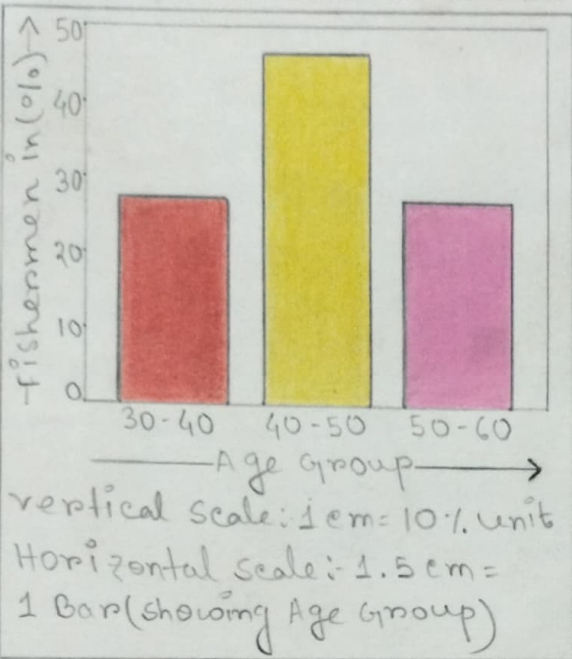 Fishermen in (%) →
50
40
30
20
10
0
30-40 40-50 50-60
Age Group
vertical scale:- 1 cm = 10% unit
Horizontal scale:- 1.5 cm =
1 Bar (showing Age Group)